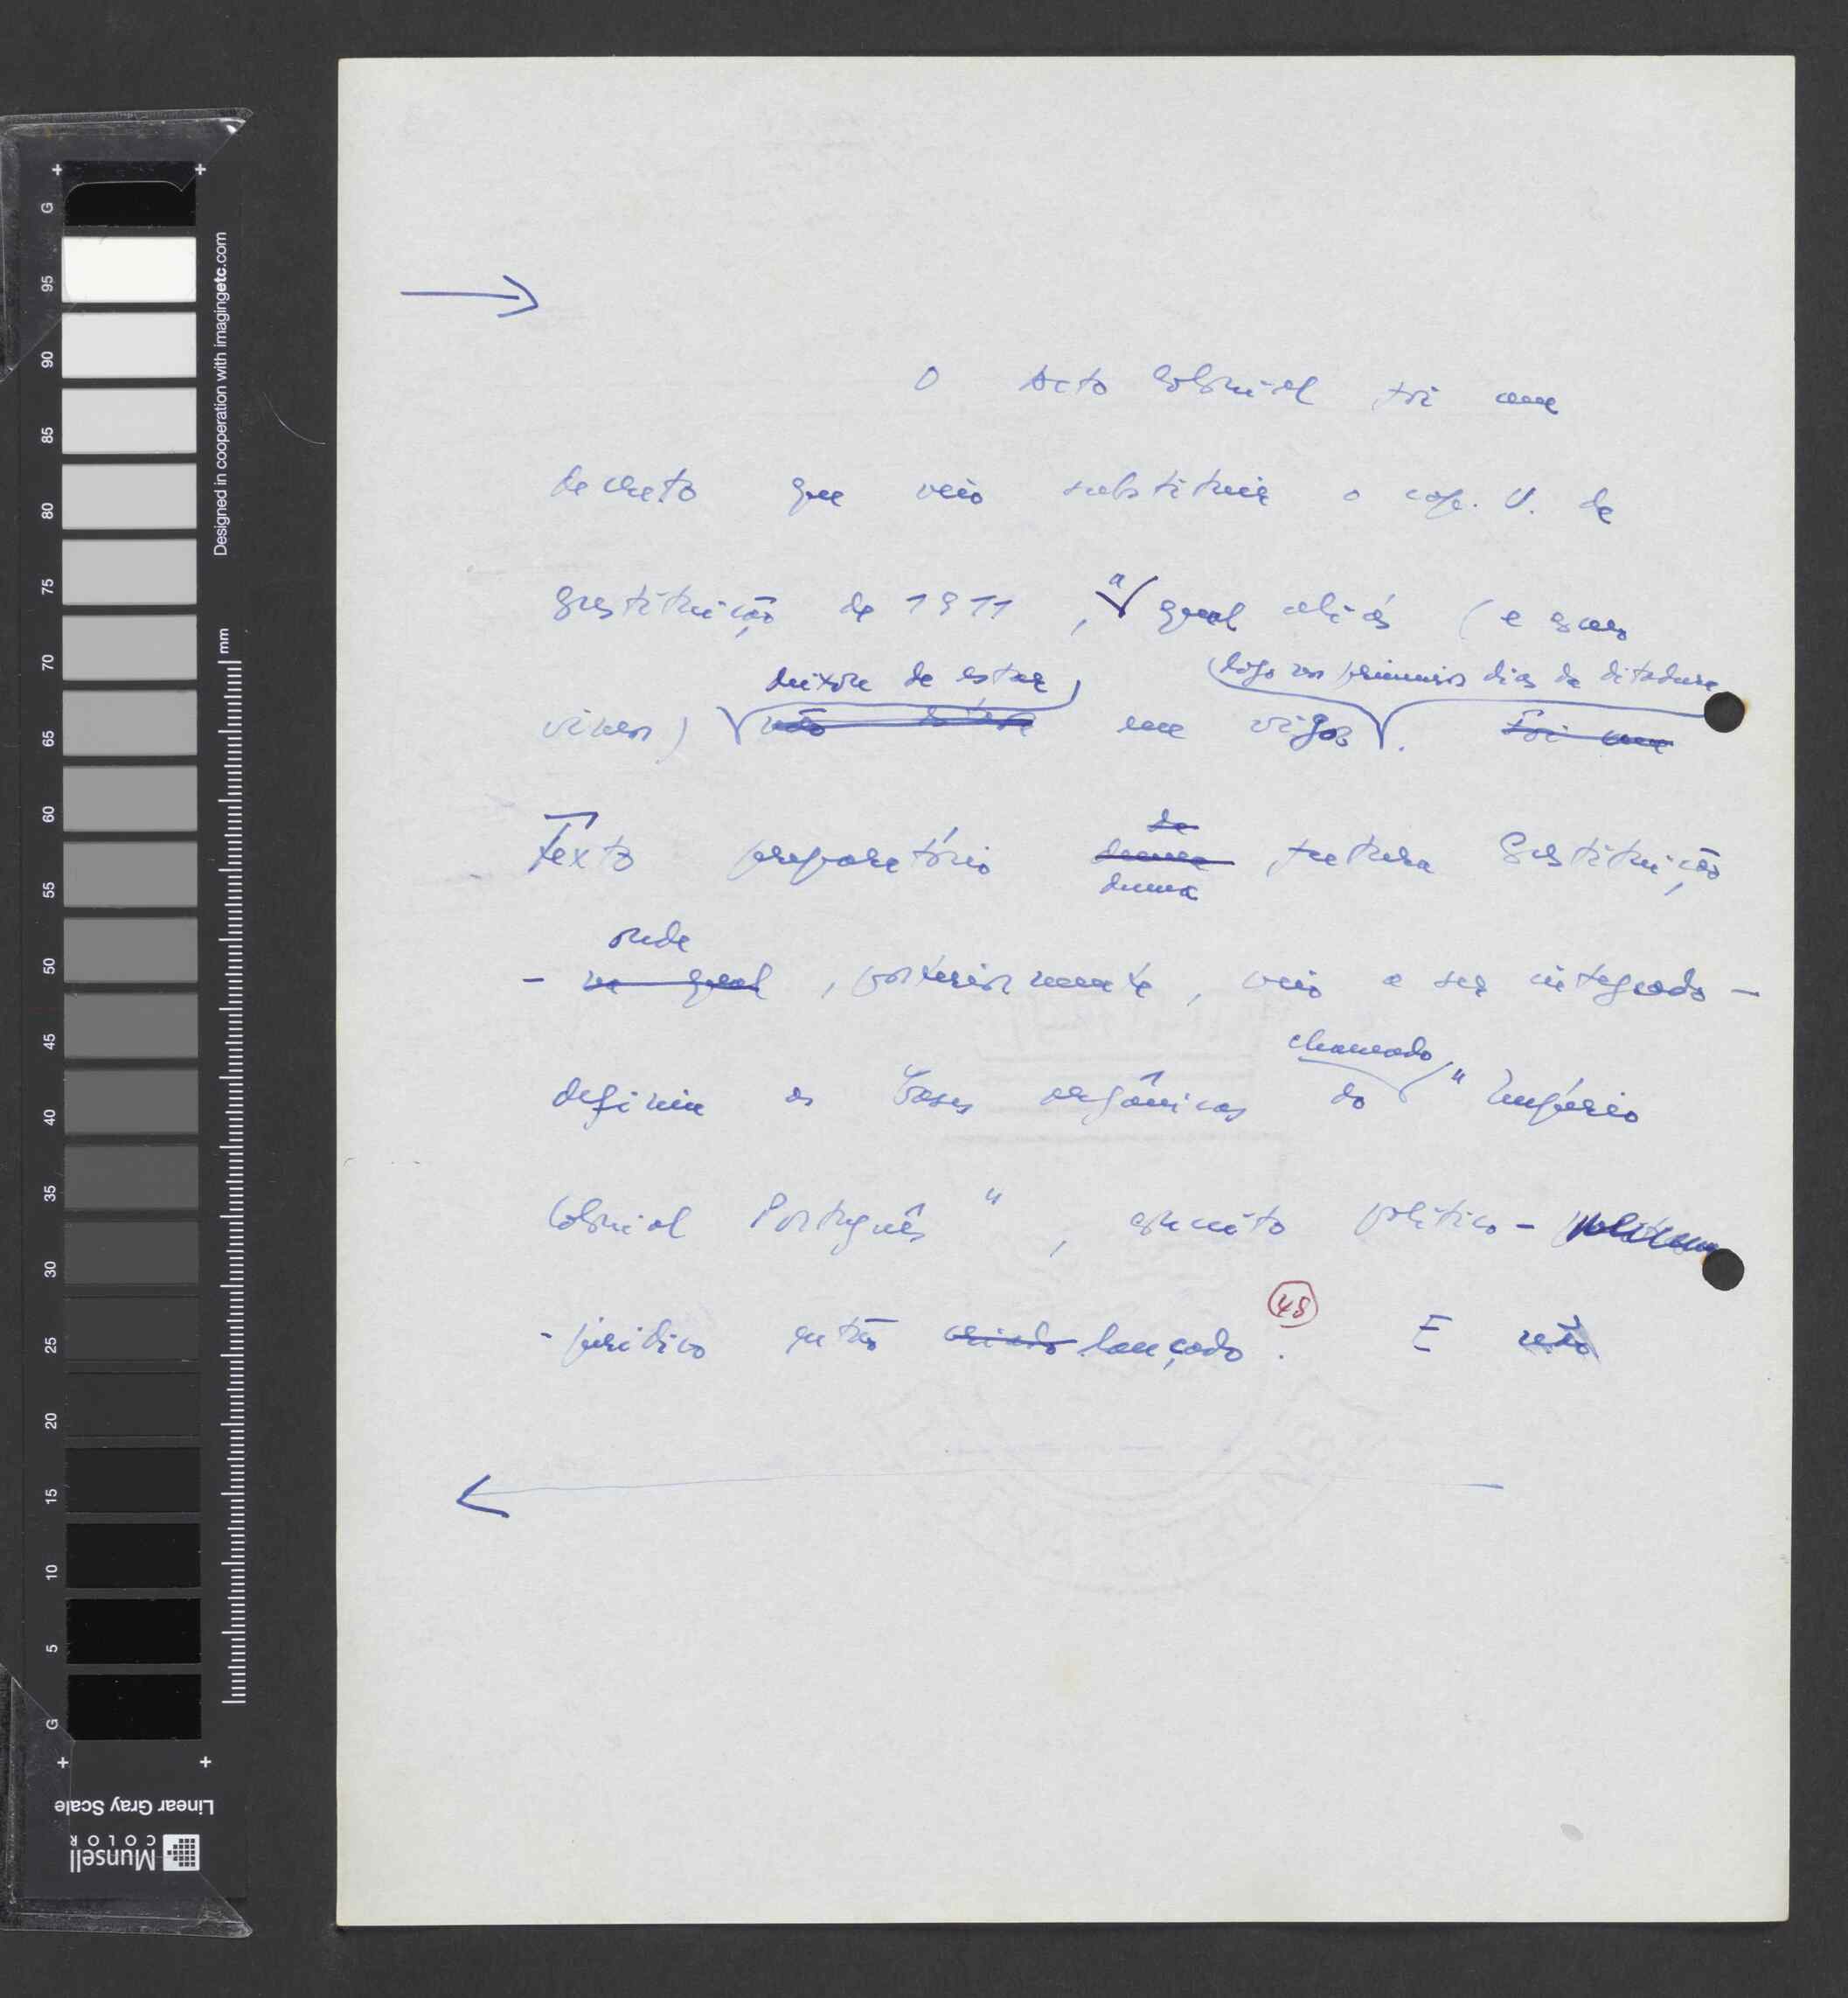 O Acto Colonial foi um
decreto que veio substituir o cap. V. da
Constituição de 1911, a qual aliás (e como
vimos) deixara de estar logo nos primeiros dias da ditadura
não em vigor. Foi um
de
Texto preparatório duma futura Constituição
duma
onde
- na qual, posteriormente, veio a ser integrado -
chamado
definia as bases orgânicas do "Império
Colonial Português", conceito político-
-jurídico então criado lançado. 48 E não
Designed in cooperation with imagingetc.com
mm
G 95 90 85 80 75 70 65 60 55 50 45 40 35 30 25 20 15 10 5 G
Linear Gray Scale
Munsell
COLOR